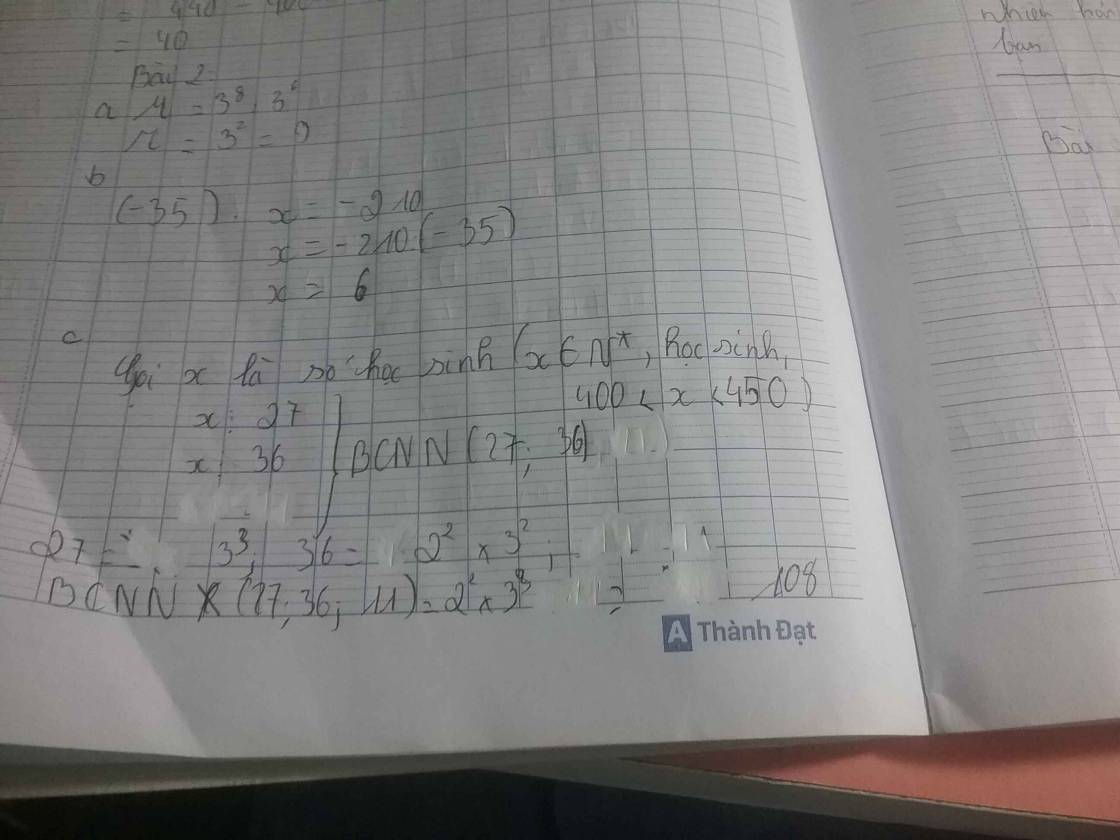 = 440 -
= 40
Bài 2
a M = 3⁸ : 3⁶
M = 3² = 9
b
(-35) . x = -210
x = -210 : (-35)
x = 6
c
Gọi x là số học sinh (x ∈ N*, học sinh,
400 < x < 450)
x : 27
x : 36 } BCNN (27; 36)
27 = 3³; 36 = 2² × 3²;
BCNN (27; 36; 11) = 2² × 3³ = 108
A Thành Đạt
nhiên
bạn
Bài